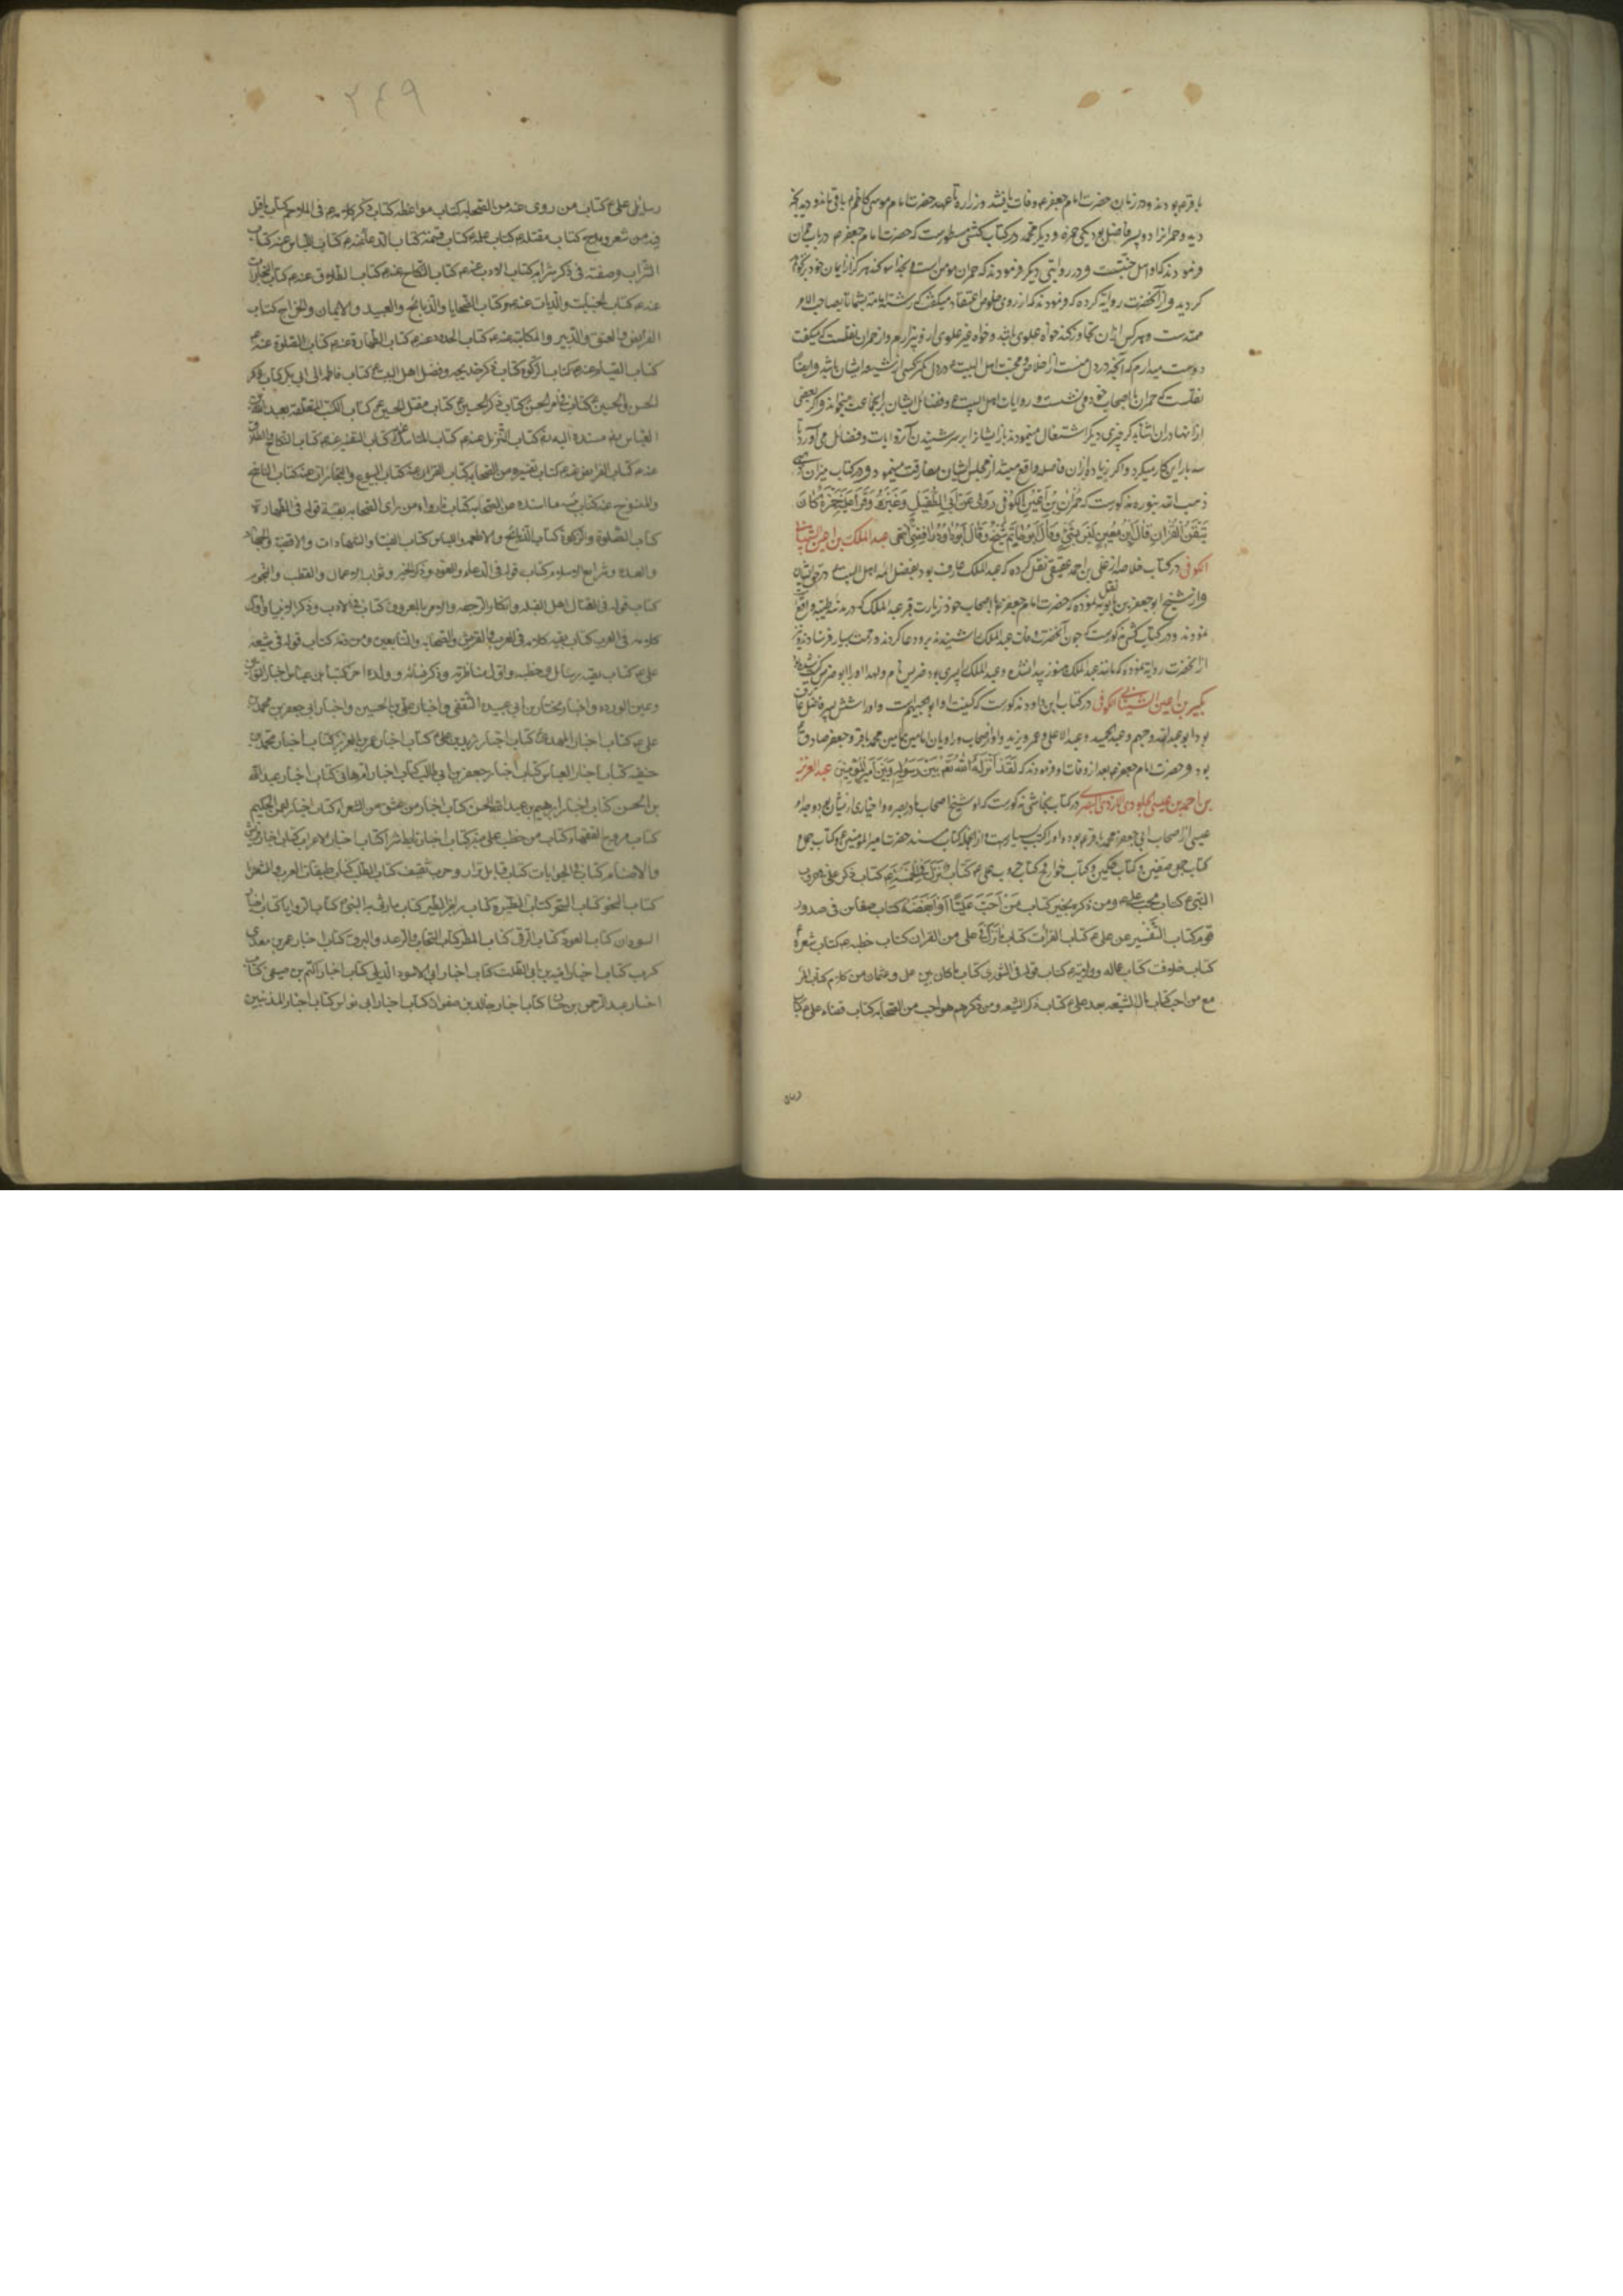 باقرم بودند و در زمان حضرت امام جعفر م وفات یافتند و زراره تا عهد حضرت امام موسی کاظم م باقی ماند و دید آنچه
دید و حمران را دو پسر فاضل بود یکی حمزه و دیگر محمد در کتاب کشی مسطورست که حضرت امام جعفر م در باب حمران
فرمودند که او اهل جنتست و در روایتی دیگر فرمودند که حمران مومن است و بخدا سوکند هرکز از ایمان خود برنخواهد
کردید و از آنحضرت روایة کرده که فرمودند که از روی خلوص اعتقاد میکفت که رشته امامت بشما تا بصاحب الامر
ممتدست و هر کس از آن تجاوز کند خواه علوی باشد و خواه غیر علوی از و بیزارم و از حمران نقلست که میکفت
دوست میدارم که آنچه در دل منست از اخلاص و محبت اهل البیت م در دل کمتر کسی از شیعه ایشان باشد و ایضا
نقلست که حمران با اصحاب خود می نشست و روایات اهل البیت م و فضائل ایشان بر آنجماعت میخواند و اکر بعضی
از آنها در آن اثنا بذکر چیزی دیکر اشتغال مینمودند باز ایشان را بر سر شنیدن آن روایات و فضائل می آورد تا
سه بار این کار میکرد و اکر زیاده از آن فاصله واقع میشد از مجلس ایشان مفارقت مینمود و در کتاب میزان
ذهبی مذکورست که حُمران بن اَعین الکوفی روی عن ابی الطُفیل و غیره و قرأ علیه حمزة کان
یتقن القرآن قال ابن معین لیس بشئ و قال ابو حاتم شیخ و قال ابو داود رافضی انتهی عبد الملک بن اعین الشیبانی
الکوفی در کتاب خلاصه از علی بن احمد عقیقی نقل کرده که عبد الملک عارف بود بفضل ائمه اهل البیت در حق ایشان
و از شیخ ابو جعفر بن بابویه نقل نموده که حضرت امام جعفر م با اصحاب خود زیارت قبر عبد الملک که در مدینه طیبه واقع
نمودند و در کتاب کشی مذکورست که چون آنحضرت وفات عبد الملک را شنیدند برو دعا کردند و رحمت بسیار فرستادند
از آنحضرت روایة نموده که مانند عبد الملک هنوز پیدا نشده و عبد الملک را پسری بود ضریس نام و لهذا او را ابو ضریس کنیت
بکیر بن اعین الشیبانی الکوفی در کتاب ابن داود مذکورست که کنیت او ابو الجهم است و او را شش پسر فاضل
بود ابو عبد الله و جهم و عبد الحمید و عبد الاعلی و عمر و یزید و او از اصحاب و راویان امامین همامین محمد باقر و جعفر صادق م
بود و حضرت امام جعفر م بعد از وفات او فرمودند که لقد انزله الله تعم بین رسوله و بین امیر المؤمنین عبد العزیز
بن احمد بن عیسی الجلودی الازدی البصری در کتاب نجاشی مذکورست که او شیخ اصحاب ما در بصره و اخباری از ایشان بود و جد او
عیسی از اصحاب ابی جعفر محمد باقر م بوده و او را کتب بسیارست از انجمله کتاب مسند حضرت امیر المومنین م و کتاب جمل و
کتاب صفین و کتاب حکمین و کتاب خوارج و کتاب حروب علی م کتاب ما نزل فی الخمسة م کتاب ذکر علی م فی حروب
النبی م کتاب محب علی م و من ذکره بخیر کتاب من احب علیا او ابغضه کتاب صفاین فی صدور
قوم کتاب التفسیر عن علی م کتاب القرأت کتاب ما نزل فی علی من القرآن کتاب خطبه م کتاب شعره
کتاب خلافت کتاب عماله و ولایته م کتاب قوله فی الشوری کتاب ما کان بین علی و عثمان من کلام کتاب المر
مع من احب کتاب مآل الشیعه بعد علی م کتاب ذکر الشیعه و من ذکرهم هو احب من الصحابه کتاب قضاء علی م کتاب
رسا
٢٤٩
رسائل علی م کتاب من روی عنه من الصحابه کتاب مواعظه کتاب ذکر کلامه م فی الملاحم کتاب ما قیل
فیه من شعر و مدح کتاب مقتله م کتاب علمه م کتاب قسمه کتاب الدعا عنه م کتاب اللباس عنه کتاب
الشراب و صفته فی ذکر شرابه کتاب الادب عنه م کتاب النکاح عنه م کتاب الطلاق عنه م کتاب التجارات
عنه م کتاب الجنایات و الدیات عنه م و کتاب الضحایا و الذبائح و العبید و الایمان و الخراج کتاب
الفرائض و العتق و التدبیر و المکاتبة عنه م کتاب الحدود عنه م کتاب الطهارة عنه م کتاب الصلوة عنه م
کتاب الصیام عنه م کتاب الزکوة کتاب ذکر خدیجه و فضل اهل البیت م کتاب فاطمه الی ابی بکر کتاب ذکر
الحسن و الحسین م کتاب فی امر الحسن م کتاب ذکر الحسین م کتاب مقتل الحسین م کتاب الکتب المتعلقه بعبد الله بن
العباس م مسنده الیه م کتاب التنزیل عنه م کتاب المناسک عنه کتاب التفسیر عنه م کتاب النکاح و الطلاق
عنه م کتاب الفرائض عنه م کتاب تفسیره من الصحابه کتاب القرآن عنه کتاب البیوع و التجارات عنه کتاب الناسخ
و المنسوخ عنه کتاب ما اسنده عن الصحابه کتاب ما رواه من رای الصحابه بقیة قوله فی الطهارة
کتاب الصلوة و الزکوة کتاب الذبائح و الاطعمه و اللباس کتاب الفتیا و الشهادات و الاقضیة و الجهاد
و العده و شرایع الاسلام کتاب قوله فی الدعاء و العوذ و ذکر الخیر و ثواب الاعمال و الطب و النجوم
کتاب قوله فی القتال اهل القبله و انکار الرجعه و الامر بالمعروف کتاب فی الادب و ذکر الانبیا و اول
کلامه فی العرب کتاب بقیه کلامه فی العرب و القریش و الصحابه و التابعین و من ذمه کتاب قوله فی شیعه
علی م کتاب بقیه رسائله و خطبه و اول مناظرته و ذکر نسائه و ولده اخر کتب ابن عباس اخبار التوابین
و عین الورده و اخبار مختار بن ابی عبیده الثقفی و اخبار علی بن الحسین و اخبار ابی جعفر بن محمد
علی م کتاب اخبار المهدی کتاب اخبار زید بن علی کتاب اخبار عمر بن العزیز کتاب اخبار محمد بن
حنفیه کتاب اخبار العباس کتاب اخبار جعفر بن ابی طالب کتاب اخبار ام هانی کتاب اخبار عبد الله
بن الحسن کتاب اخبار ابرهیم بن عبد الله الحسن کتاب اخبار من عشق من الشعراء کتاب اخبار لقمن الحکیم
کتاب مروج الفقهاء کتاب من خطب علی منبر کتاب اخبار تابط شرا کتاب اخبار الاعراب کتاب اخبار قریش
و الاصنام کتاب فی الجوابات کتاب قبایل نزار و حرب ثقیف کتاب الطلب کتاب طبقات العرب و الشعرا
کتاب النحو کتاب السحر کتاب الطیره کتاب زجر الطیر کتاب ما رثی به النبی م کتاب الرویا کتاب اخبار
السودان کتاب العوذ کتاب الرقی کتاب المطر کتاب السحاب و الرعد و البروق کتاب اخبار عمر بن معدی
کرب کتاب اخبار امیه بن ابی الصلت کتاب اخبار ابی الاسود الدئلی کتاب اخبار اکثم بن صیفی کتاب
اخبار عبد الرحمن بن حسان کتاب اخبار خالد بن صفوان کتاب اخبار ابی نواس کتاب اخبار المذنبین